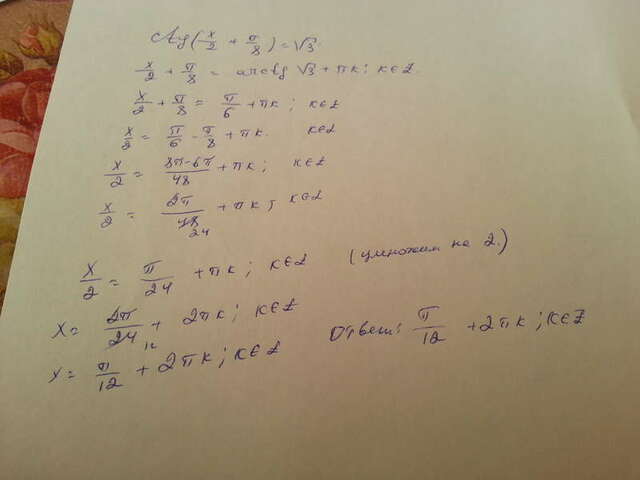 ctg(x/2 + π/8) = √3
x/2 + π/8 = arcctg √3 + πk; k∈Z.
x/2 + π/8 = π/6 + πk; k∈Z
x/2 = π/6 - π/8 + πk. k∈Z
x/2 = 8π-6π/48 + πk; k∈Z
x/2 = 2π/48 24 + πk; k∈Z
x/2 = π/24 + πk; k∈Z (умножим на 2.)
x = 2π/24 12 + 2πk; k∈Z
x = π/12 + 2πk; k∈Z Ответ: π/12 + 2πk; k∈Z